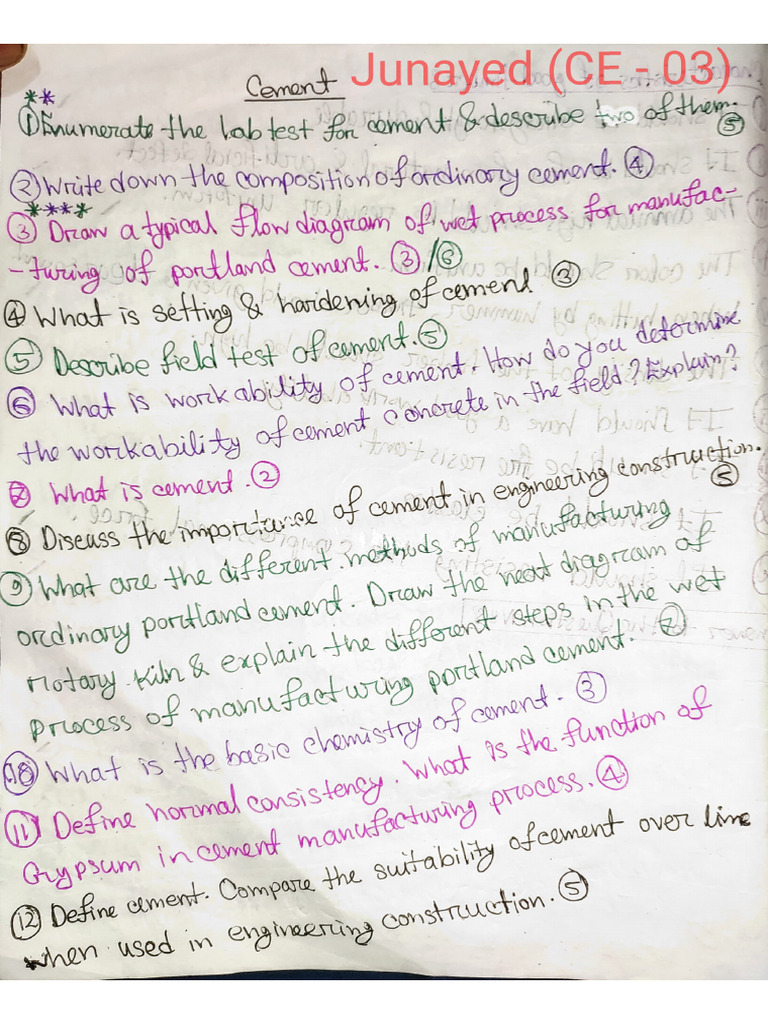 Junayed (CE - 03)
Cement
**
① Enumerate the Lab test for cement & describe two of them. ⑤
② Write down the composition of ordinary cement. ④
****
③ Draw a typical flow diagram of wet process for manufac-
-turing of portland cement. ③/⑥
④ What is setting & hardening of cement ③
⑤ Describe field test of cement. ⑤
⑥ What is workability of cement. How do you determine
the workability of cement concrete in the field? Explain?
⑦ What is cement. ②
⑧ Discuss the importance of cement in engineering construction. ⑤
⑨ What are the different methods of manufacturing
ordinary portland cement. Draw the neat diagram of
rotary kiln & explain the different steps in the wet
process of manufacturing portland cement. ⑦
⑩ What is the basic chemistry of cement. ③
⑪ Define normal consistency. What is the function of
Gypsum in cement manufacturing process. ④
⑫ Define cement. Compare the suitability of cement over lime
when used in engineering construction. ⑤